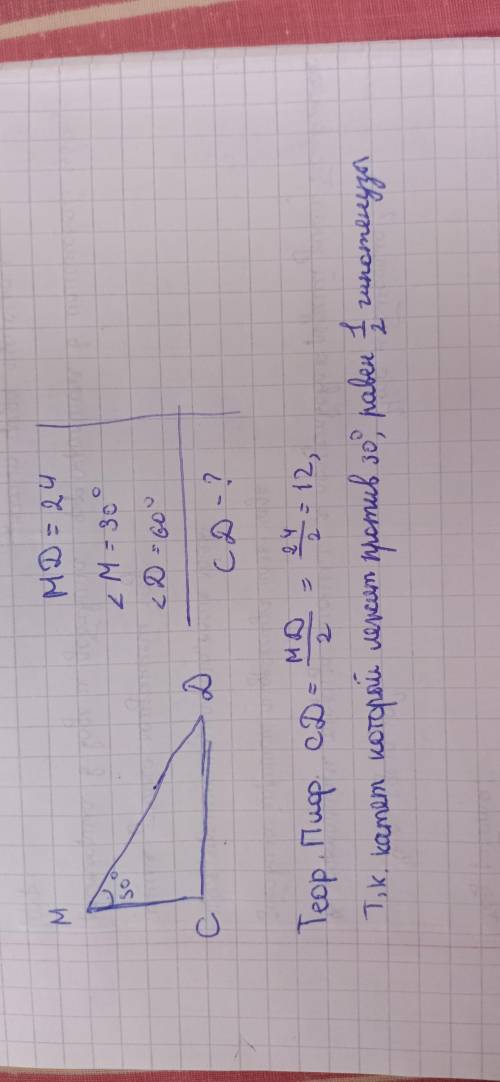 MD = 24
∠M = 30°
∠D = 60°
CD - ?
M
30°
C
D
Теор. Пиф. CD = MD/2 = 24/2 = 12,
Т.к. катет который лежит против 30°, равен 1/2 гипотенузы